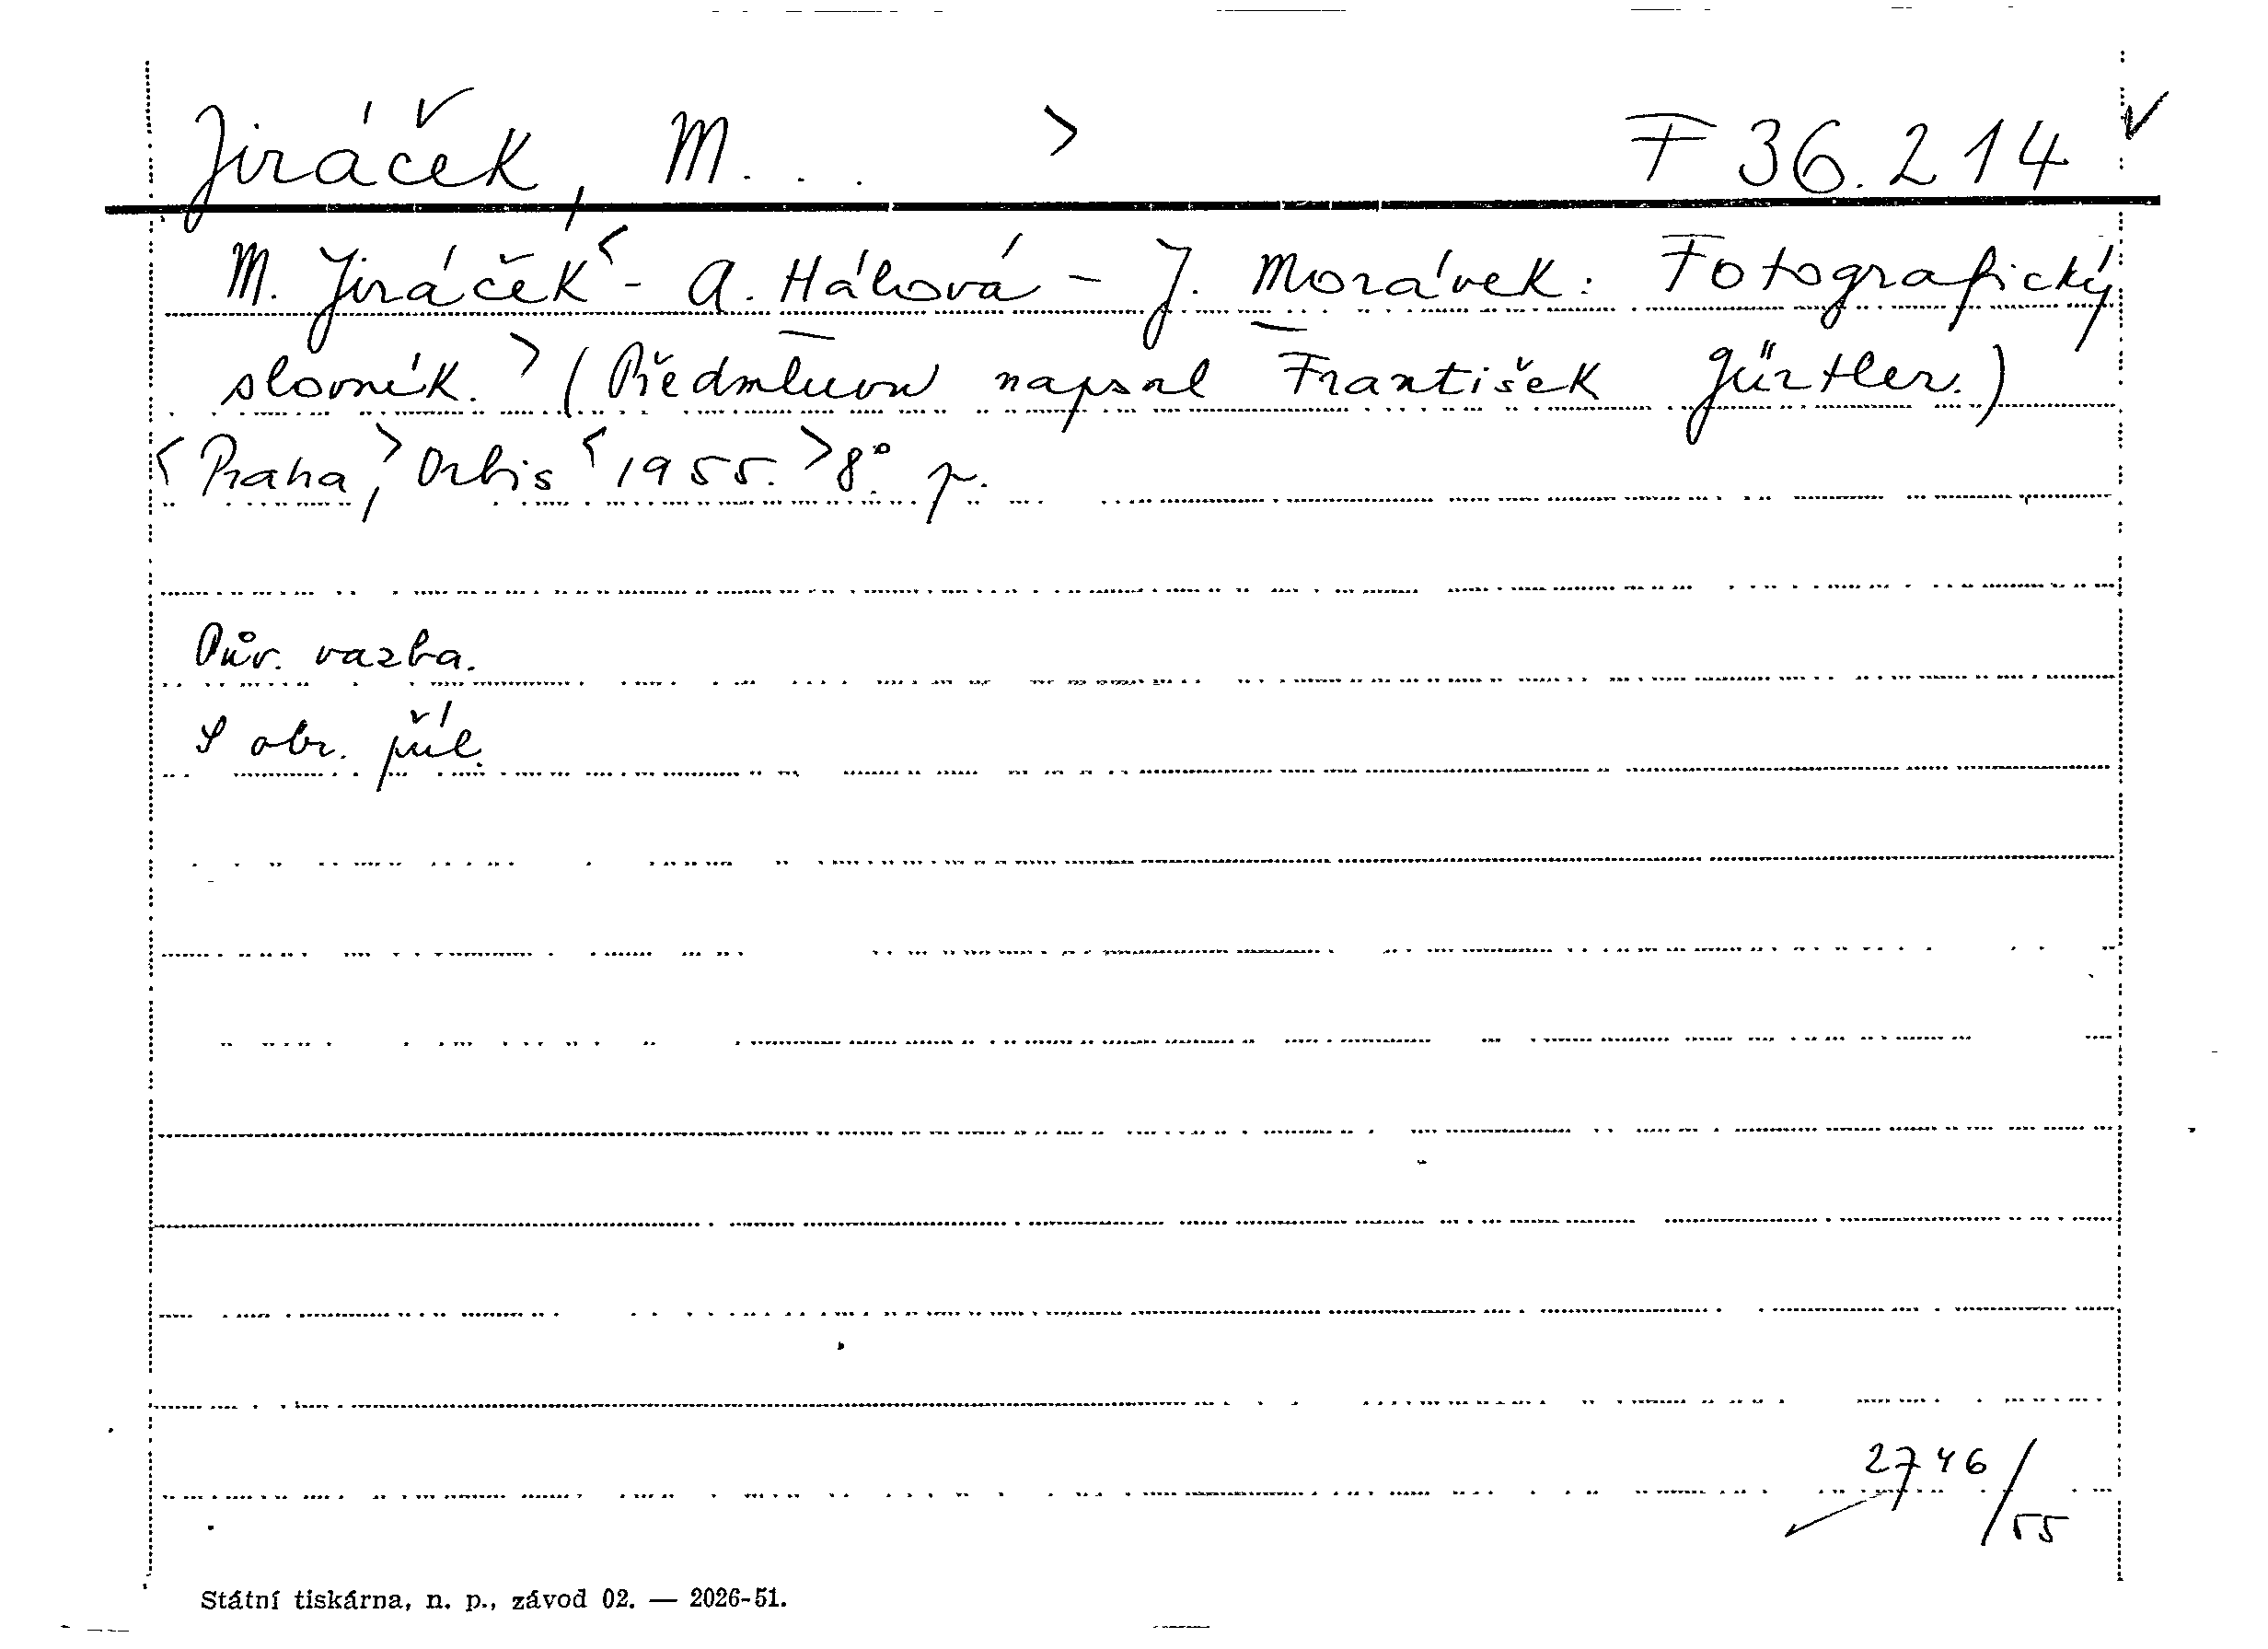 Jiráček, M... > F 36.214 ✓
M. Jiráček < - A. Hálová - J. Morávek: Fotografický
slovník. > (Předmluvu napsal František Gürtler.)
< Praha, > Orbis < 1955. > 8° p.
Pův. vazba.
S obr. příl.
2746/55
Státní tiskárna, n. p., závod 02. — 2026-51.